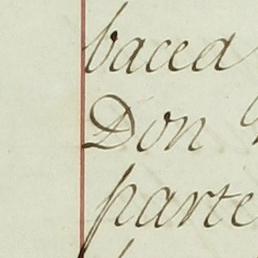 bacea
Don
parte